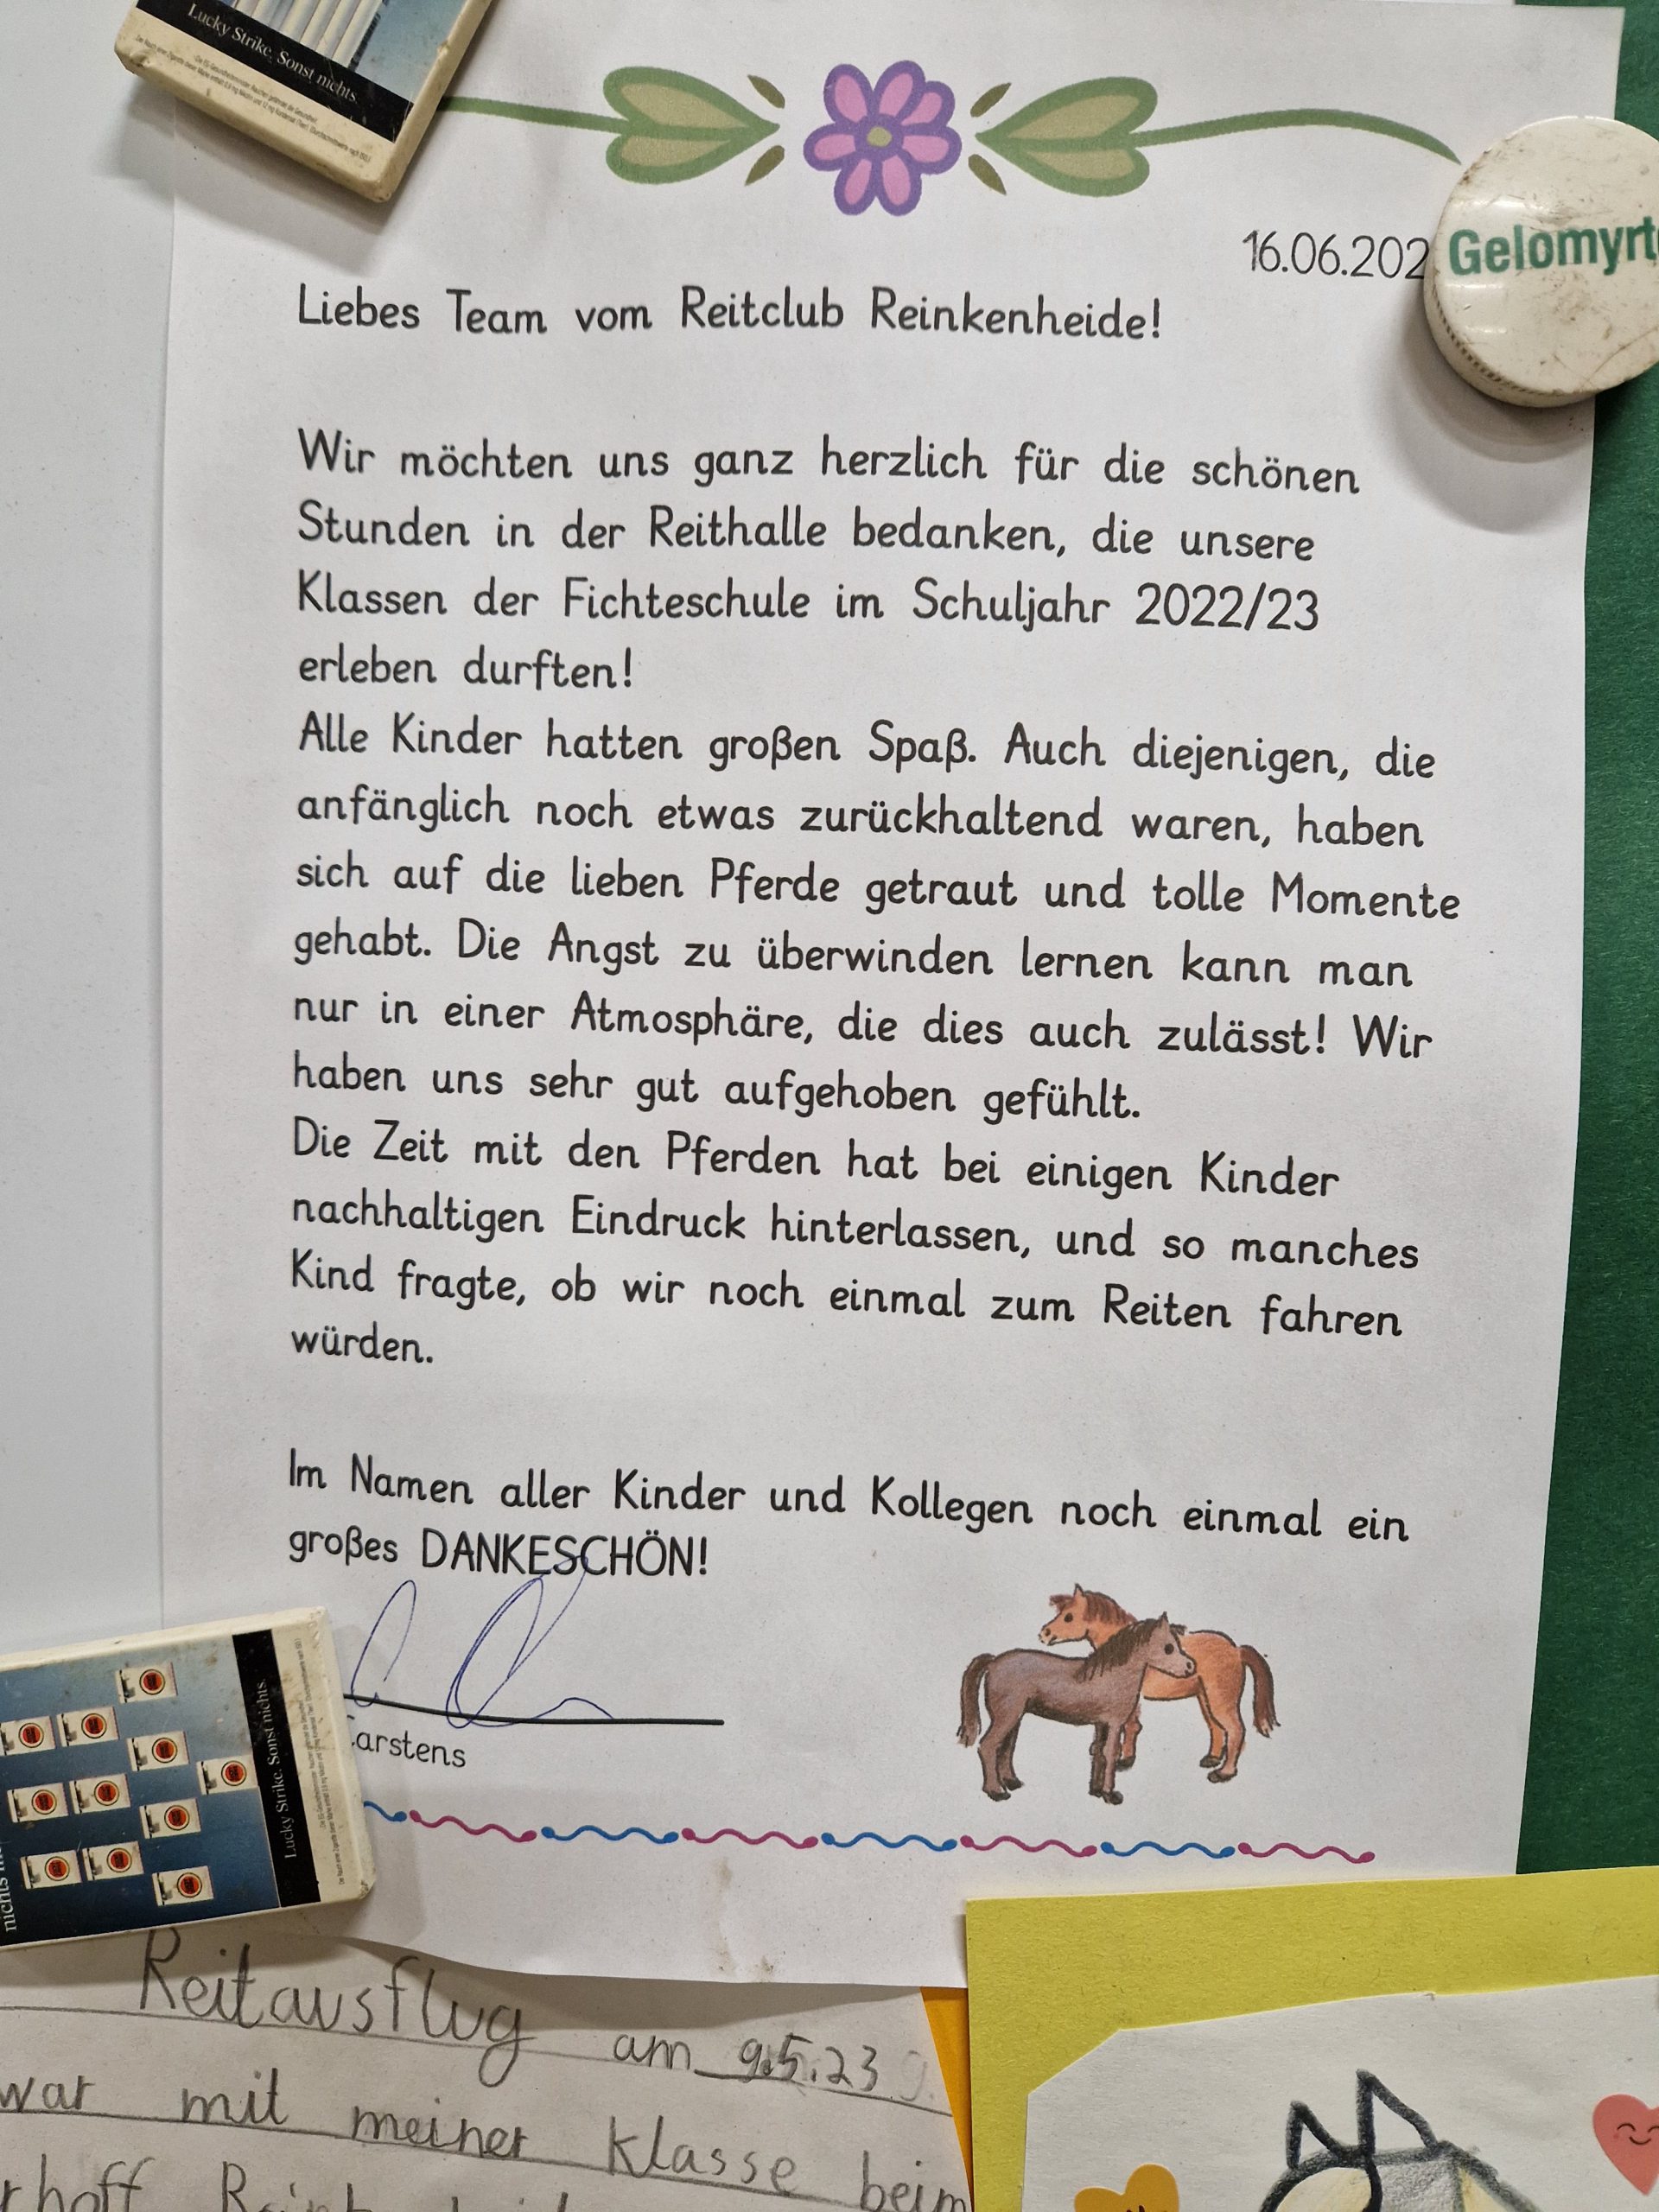 Lucky Strike. Sonst nichts.
16.06.202
Gelomyrt
Liebes Team vom Reitclub Reinkenheide!
Wir möchten uns ganz herzlich für die schönen
Stunden in der Reithalle bedanken, die unsere
Klassen der Fichteschule im Schuljahr 2022/23
erleben durften!
Alle Kinder hatten großen Spaß. Auch diejenigen, die
anfänglich noch etwas zurückhaltend waren, haben
sich auf die lieben Pferde getraut und tolle Momente
gehabt. Die Angst zu überwinden lernen kann man
nur in einer Atmosphäre, die dies auch zulässt! Wir
haben uns sehr gut aufgehoben gefühlt.
Die Zeit mit den Pferden hat bei einigen Kinder
nachhaltigen Eindruck hinterlassen, und so manches
Kind fragte, ob wir noch einmal zum Reiten fahren
würden.
Im Namen aller Kinder und Kollegen noch einmal ein
großes DANKESCHÖN!
Carstens
Lucky Strike. Sonst nichts.
nichts
Reitausflug am 9.5.23
war mit meiner Klasse beim